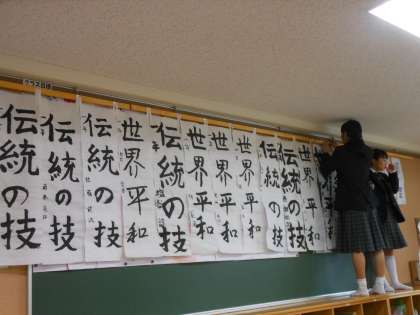 伝統の技
伝統の技
伝統の技
世界平和
伝統の技
世界平和
世界平和
世界平和
伝統の技
伝統の技
世界平和